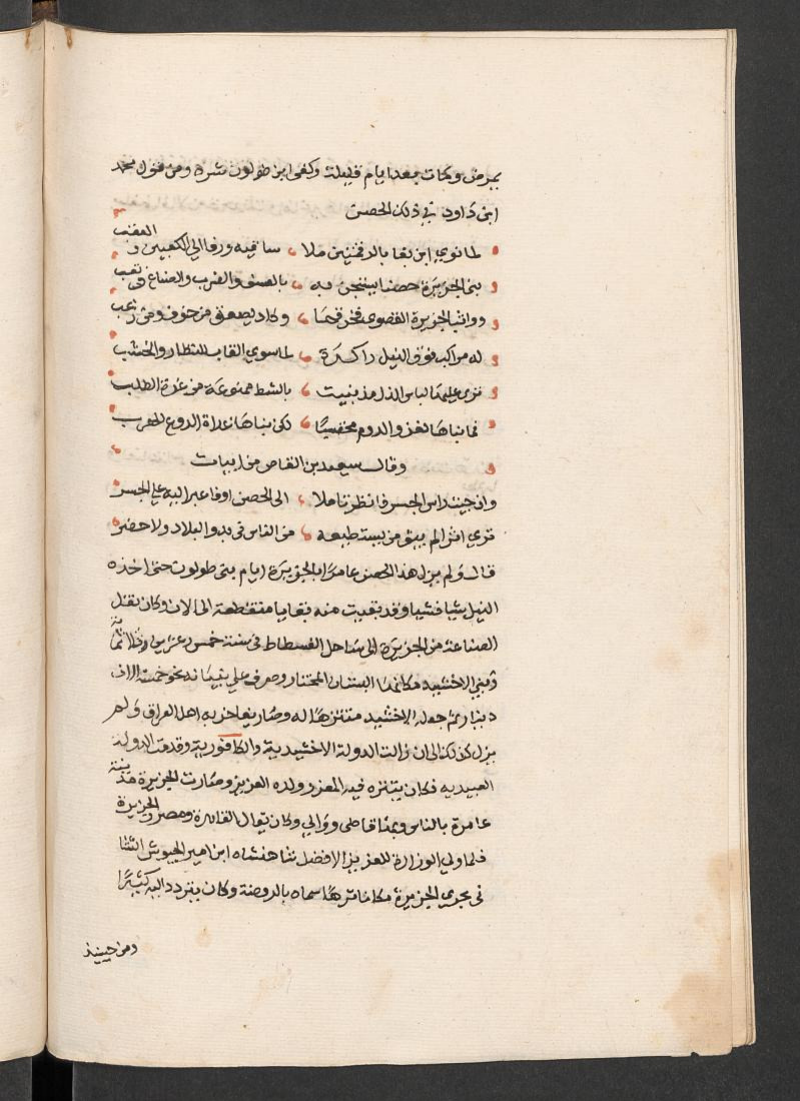 بمرض ومات بعد ايام قليلة وكفى ابن طولون شره ومن قول محمد
ابن داود في ذلك الحصن
لما نوى ابن بغا بالرقتين ملا ساقيه ورقا الى الكعبين والعقب
بنى الجزيرة حصنا يستجن به بالعسف والضرب والصناع في تعب
وواثب الجزيرة القصوى فخندقها وكاد يصعق من خوف ومن رعب
له مراكب فوق النيل راكدة لما سوى القار للنظار والخشب
ترى عليها لباس الذل مذ بنيت بالشط ممنوعة من عزة الطلب
فما بناها لغزو الروم محتسبا لكن بناها غداة الروع للهرب
وقال سعيد بن القاص من ابيات
وان جئت راس الجسر فانظر تاملا الى الحصن او فاعبر اليه على الجسر
ترى اثرا لم يبق من يستطيعه من الناس في بدو البلاد ولا حضر
قال ولم يزل هذا الحصن عامرا بالجزيرة ايام بني طولون حتى اخذه
النيل شيا فشيا وقد بقيت منه بقايا متقطعة الى الان وكان نقل
الصناعة من الجزيرة الى ساحل الفسطاط في سنة خمس وعشرين وثلاثماية
وبنى الاخشيد مكانها البستان المختار وصرف على بنيانه نحو خمسة الاف
دينار ثم جعله الاخشيد متنزها له وصار يفاخر به اهل العراق ولم
يزل كذلك الى ان زالت الدولة الاخشيدية والكافورية وقدمت الدولة
العبيديه فكان يتنزه فيه المعز وولده العزيز وصارت الجزيرة مدينة
عامرة بالناس وبها قاضي ووالي وكان يقال القاهرة ومصر والجزيرة
فلما ولي الوزارة للعزيز الافضل شاهنشاه ابن امير الجيوش انشا
في بحري الجزيرة مكانا نزها سماه بالروضة وكان يتردد اليه كثيرا
ومن حينيذ